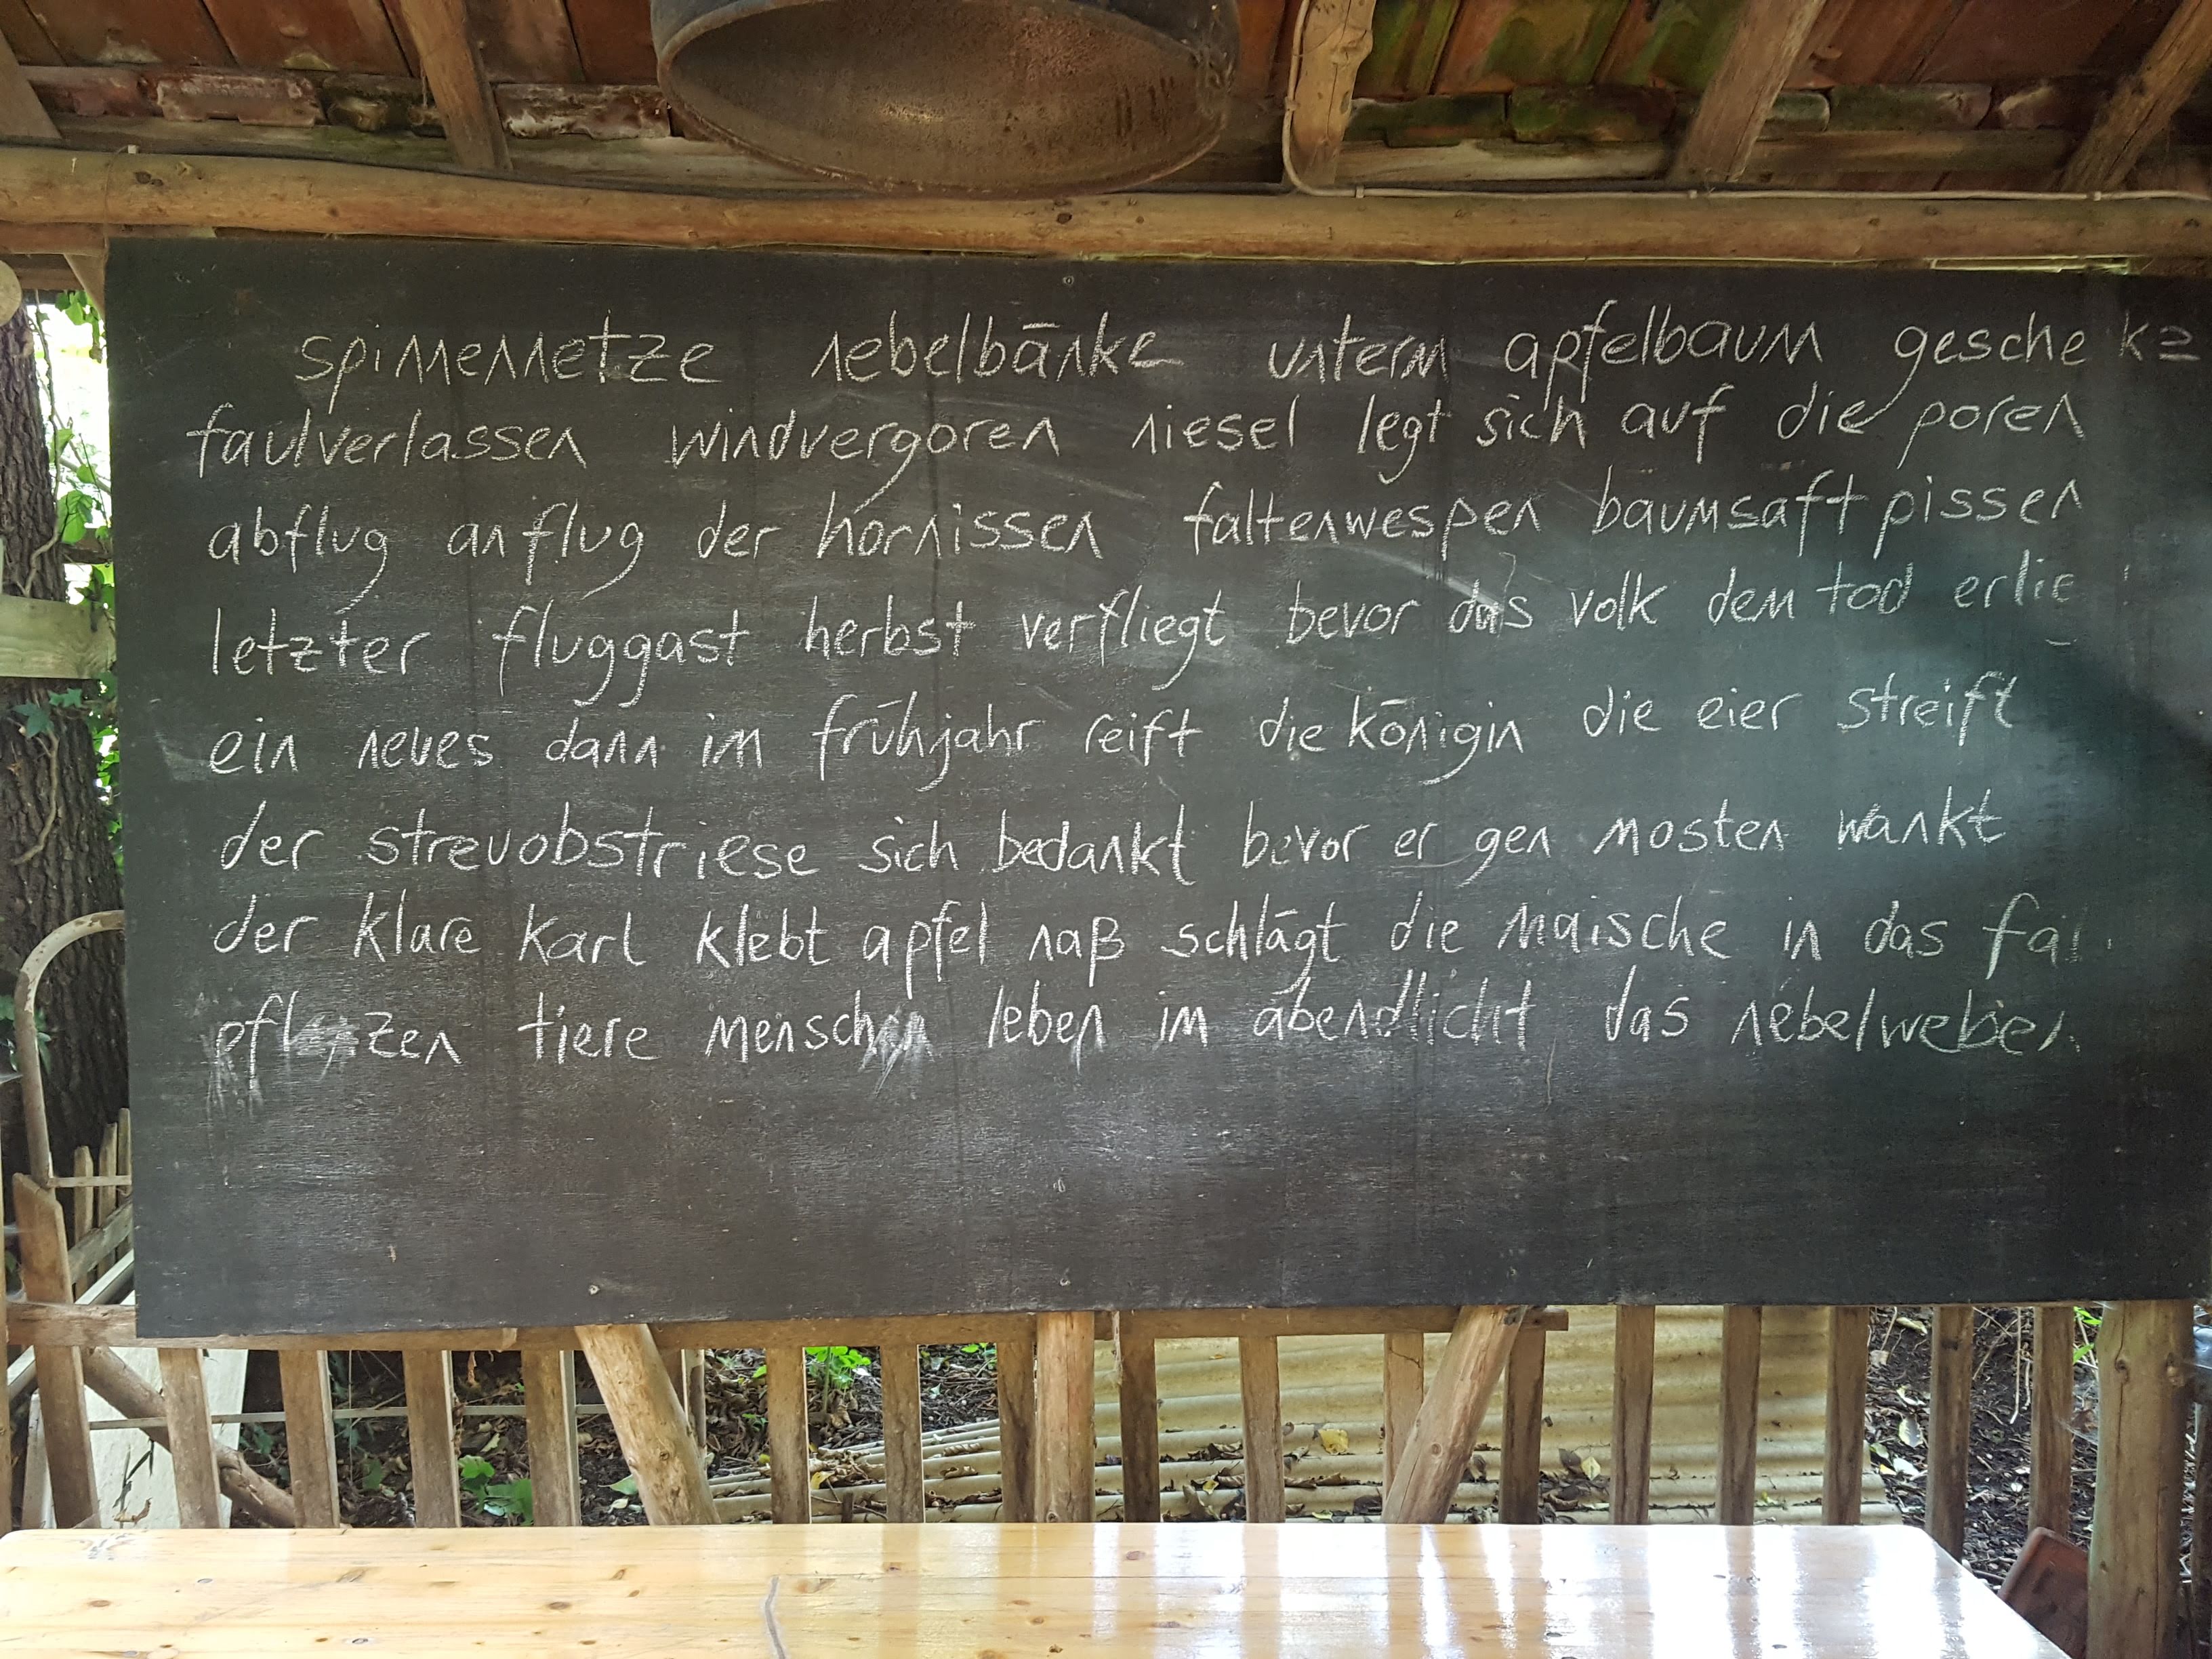 spinnennetze nebelbänke unterm apfelbaum
faulverlassen windvergoren niesel legt sich auf die poren
abflug anflug der hornissen faltenwespen baumsaft pissen
letzter fluggast herbst verfliegt bevor das volk dem tod
ein neues dann im frühjahr reift die königin die eier streift
der streuobstriese sich bedankt bevor er gen mosten wankt
der klare karl klebt apfel naß schlägt die maische in das
pflanzen tiere menschen leben im abendlicht das nebelweben